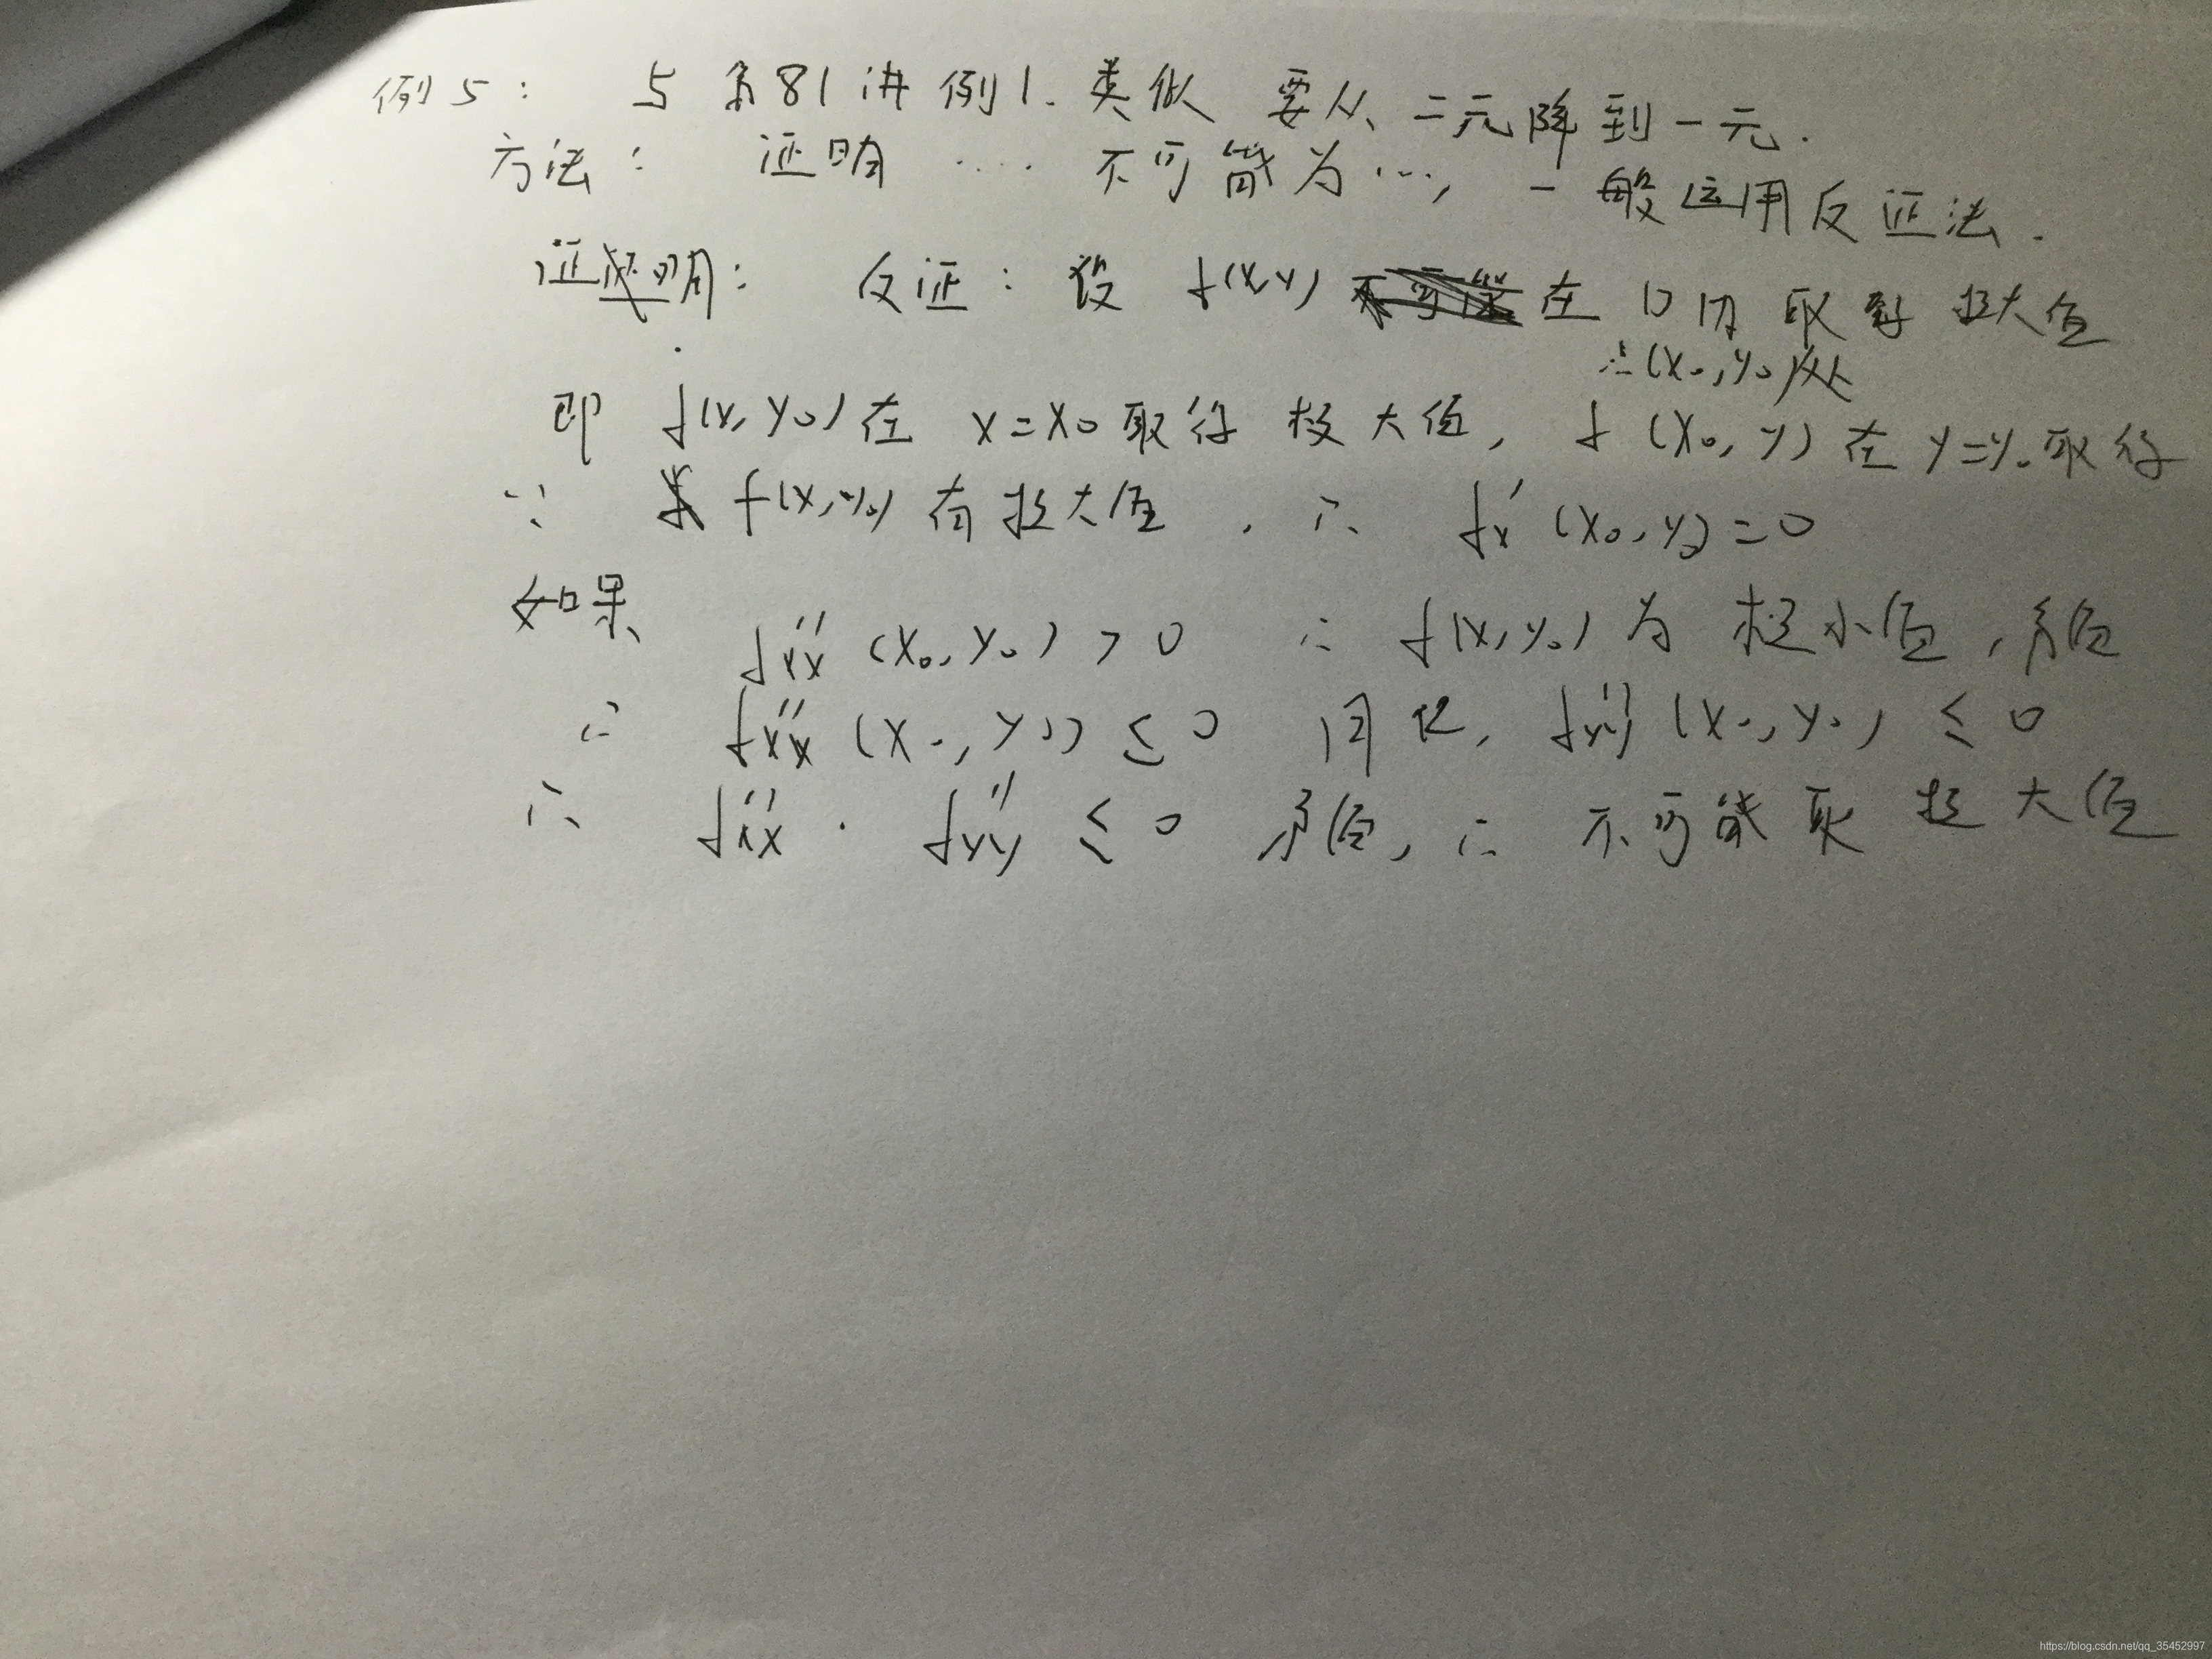 例5: 与第81讲例1.类似 要从二元降到一元.
方法: 证明 ... 不可能为..., 一般运用反证法.
证明: 反证: 设 f(x,y) 在D内取到极大值
在(x₀,y₀)处
即 f(x,y₀)在 x=x₀取得极大值, f(x₀,y)在y=y₀取得
∵ f(x,y₀)有极大值. ∴ fx'(x₀,y₀)=0
如果 fxx''(x₀,y₀)>0 ∴ f(x,y₀)为极小值,矛盾
∴ fxx''(x₀,y₀)≤0 同理, fyy''(x₀,y₀)≤0
∴ fxx''·fyy''≤0 矛盾, ∴ 不可能取极大值
https://blog.csdn.net/qq_35452997